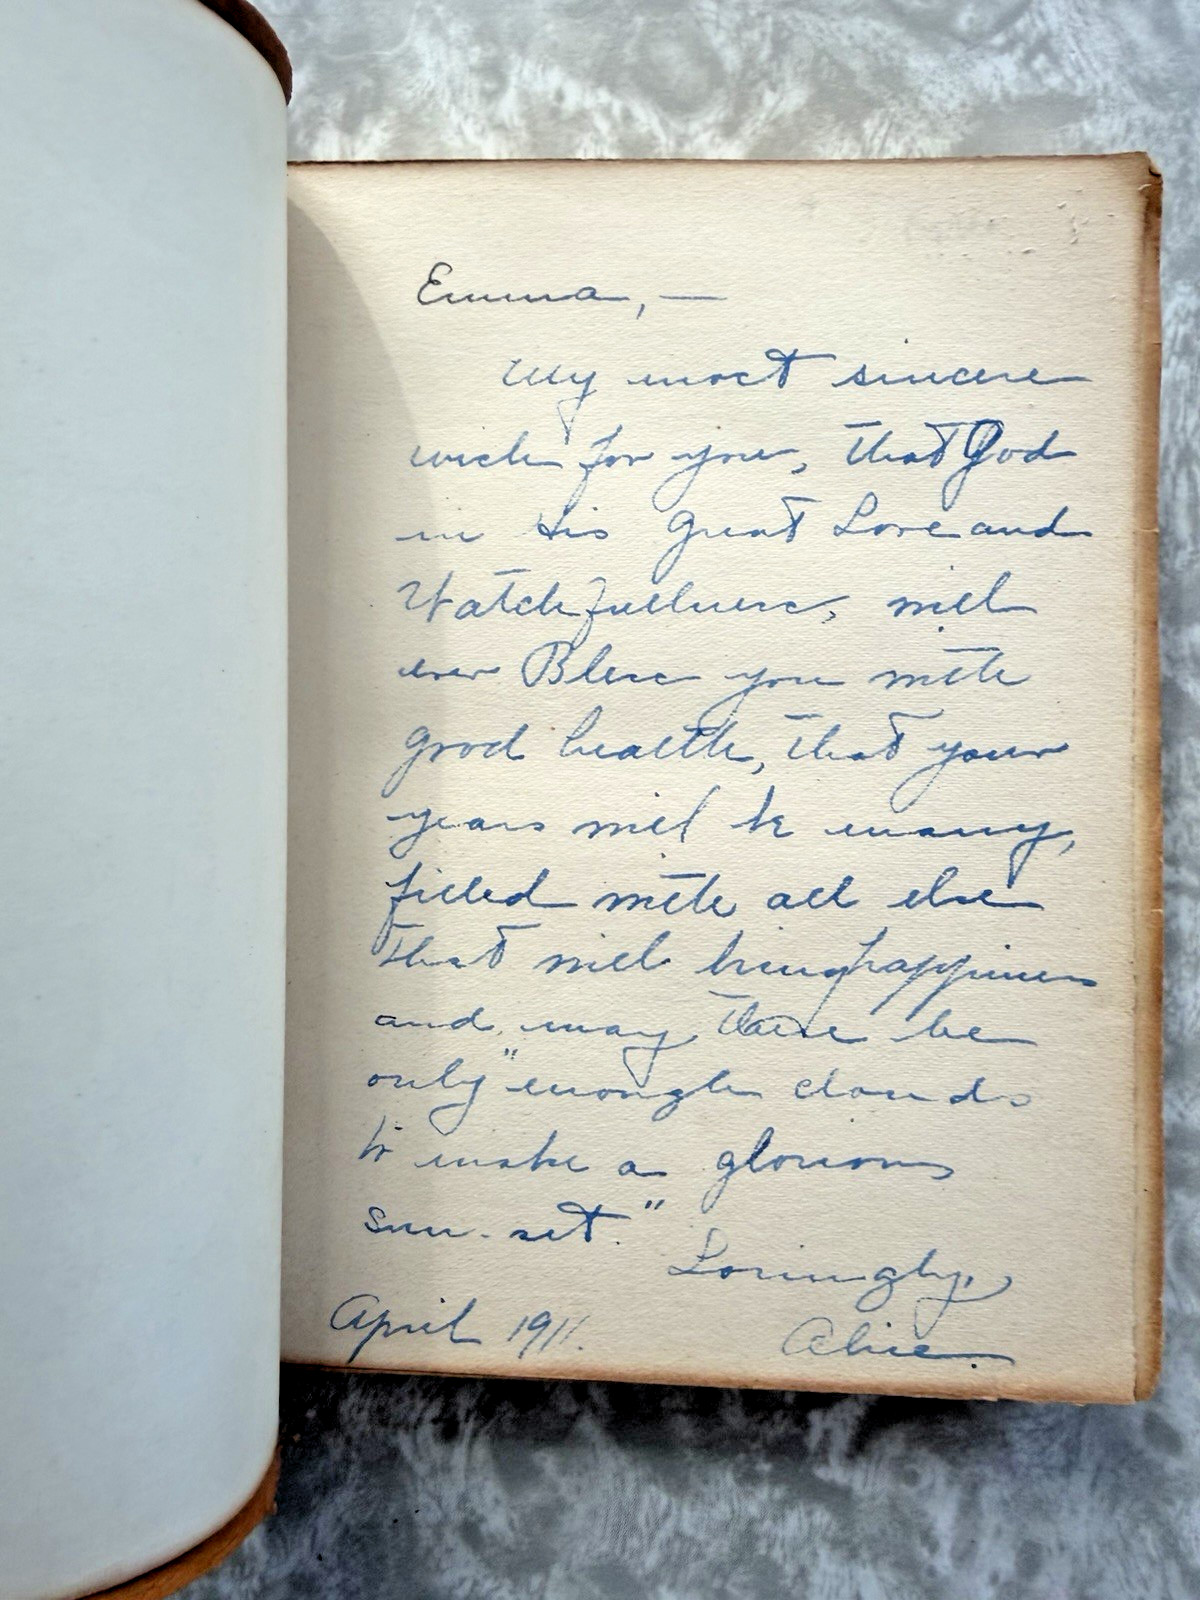 Emma, —
My most sincere
wish for you, that God
in His Great Love and
Watchfullness, will
ever Bless you with
good health, that your
years will be many,
filled with all else
that will bring happiness
and may there be
only "enough clouds
to make a glorious
sun-set."
Lovingly,
April 1911.
Alice.